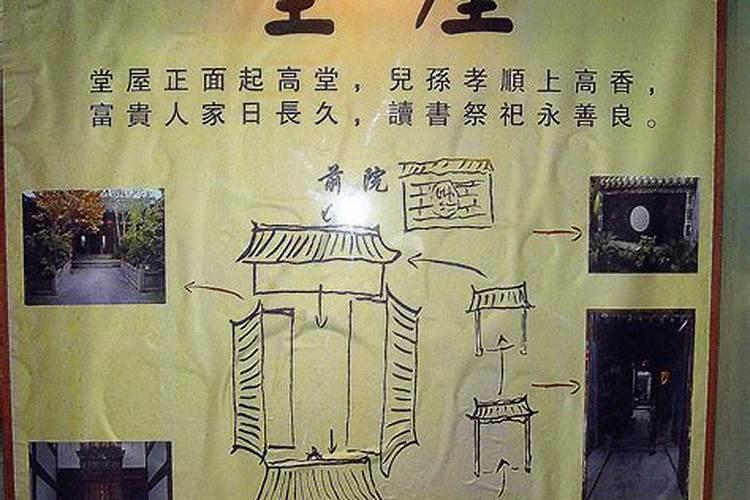 堂屋
堂屋正面起高堂，兒孫孝順上高香，
富貴人家日長久，讀書祭祀永善良。
前院